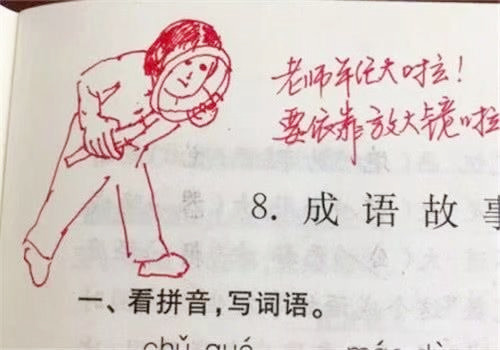 老师年纪大啦!
要依靠放大镜啦
8. 成 语 故 事
一、看拼音,写词语。